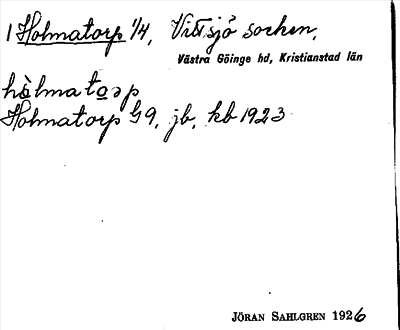 1 Holmatorp 1/4, Vittsjö socken,
Västra Göinge hd, Kristianstad län
hòlmatọrp
Holmatorp G9, jb, kb 1923
JÖRAN SAHLGREN 1926